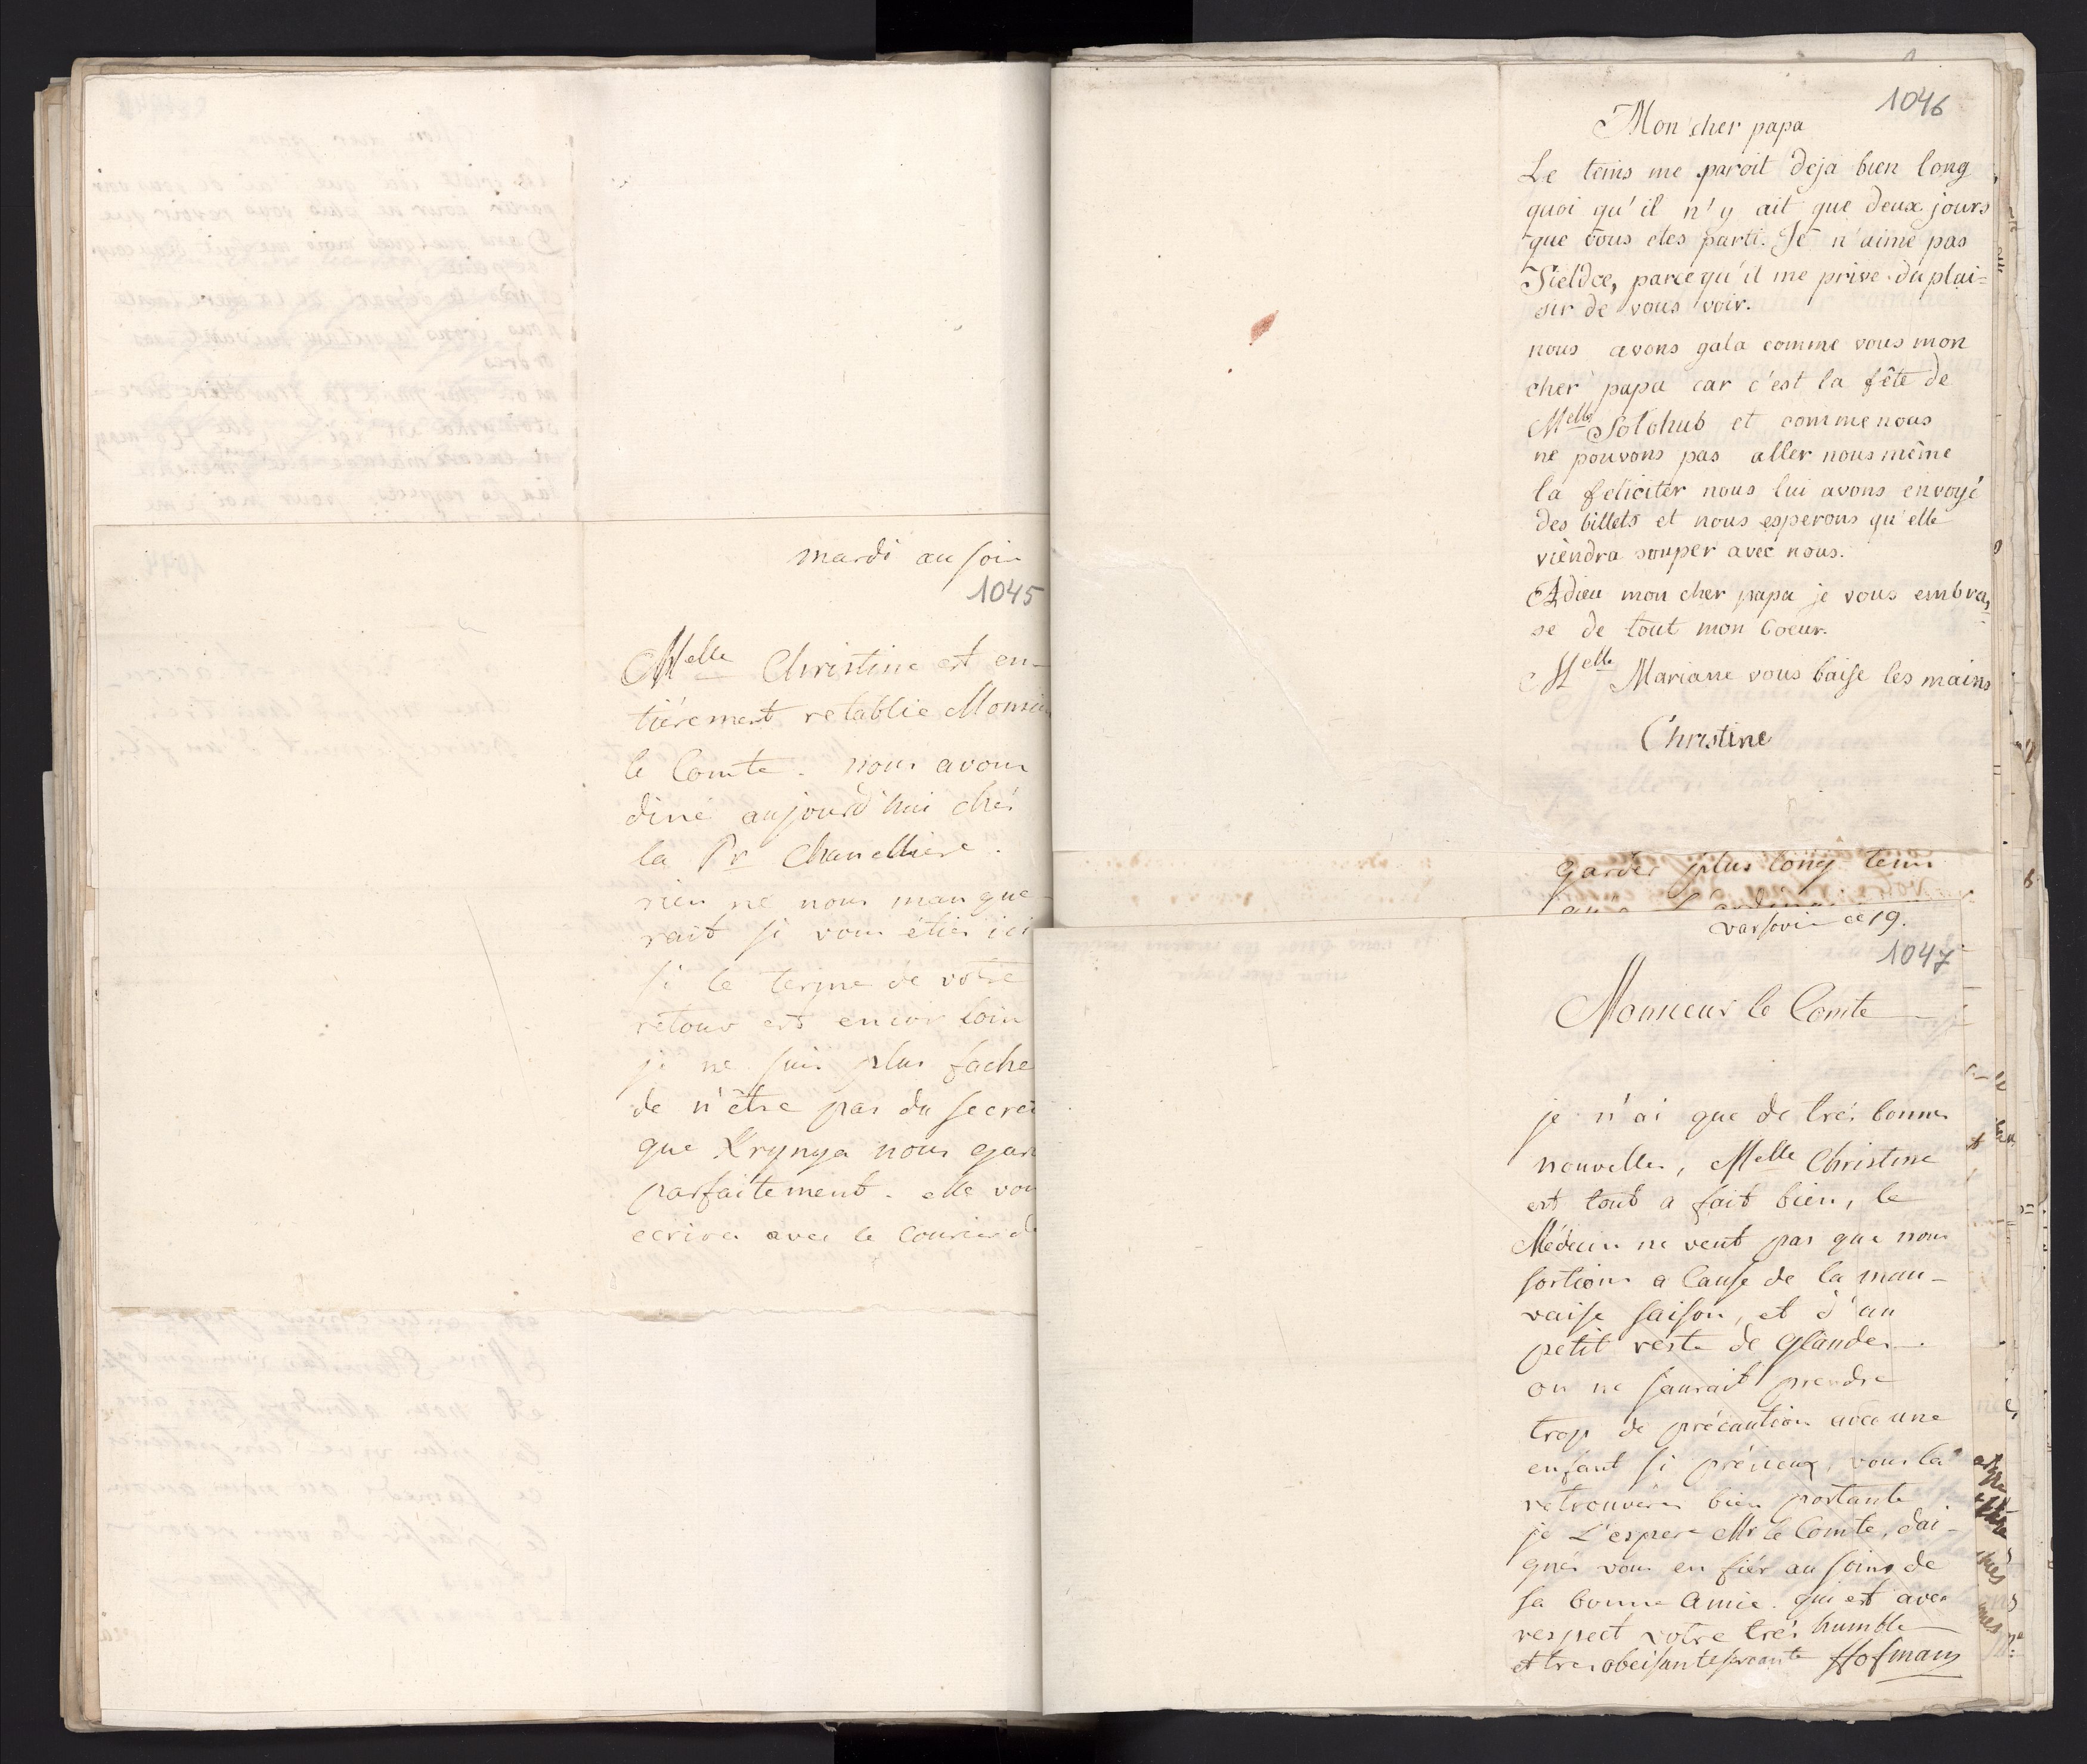 mardi au soir
1045
Melle Christine est en-
tièrement retablie Monsieu
le Comte. nous avons
diné aujourd'hui chés
la Pr Chancelliere.
rien ne nous manque-
rait si vous étiés ici
si le terme de votre
retour est encor loin
je ne suis plus fache
de n'être pas du secret
que Krynya nous gar
parfaitement. elle vou
ecrira avec le Courier de
1046
Mon cher papa
Le tems me paroit deja bien long,
quoi qu'il n'y ait que deux jours
que vous etes parti. Je n'aime pas
Sieldce, parcequ'il me prive du plai=
sir de vous voir.
nous avons gala comme vous mon
cher papa car c'est la fête de
Melle Solohub et comme nous
ne pouvons pas aller nous même
la feliciter nous lui avons envoyé
des billets et nous esperons qu'elle
viendra souper avec nous.
Adieu mon cher papa je vous embras
se de tout mon coeur.
Melle Mariane vous baise les mains
Christine
garder plus long tems
varsovie ce 19.
1047
Monsieur le Comte
je n'ai que de trés bonnes
nouvelles, Melle Christine
est tout a fait bien, le
Médecin ne veut pas que nous
sortions a Cause de la mau-
vaise saison, et d'un
petit reste de Glandes.
on ne saurait prendre
trop de précaution avec une
enfant si précieux, vous la
retrouverés bien portante
je L'espere Mr le Comte, dai-
gnés vous en fiér au soins de
sa bonne Amie. qui est avec
respect votre trés humble
et tres obeisante servante Hofman